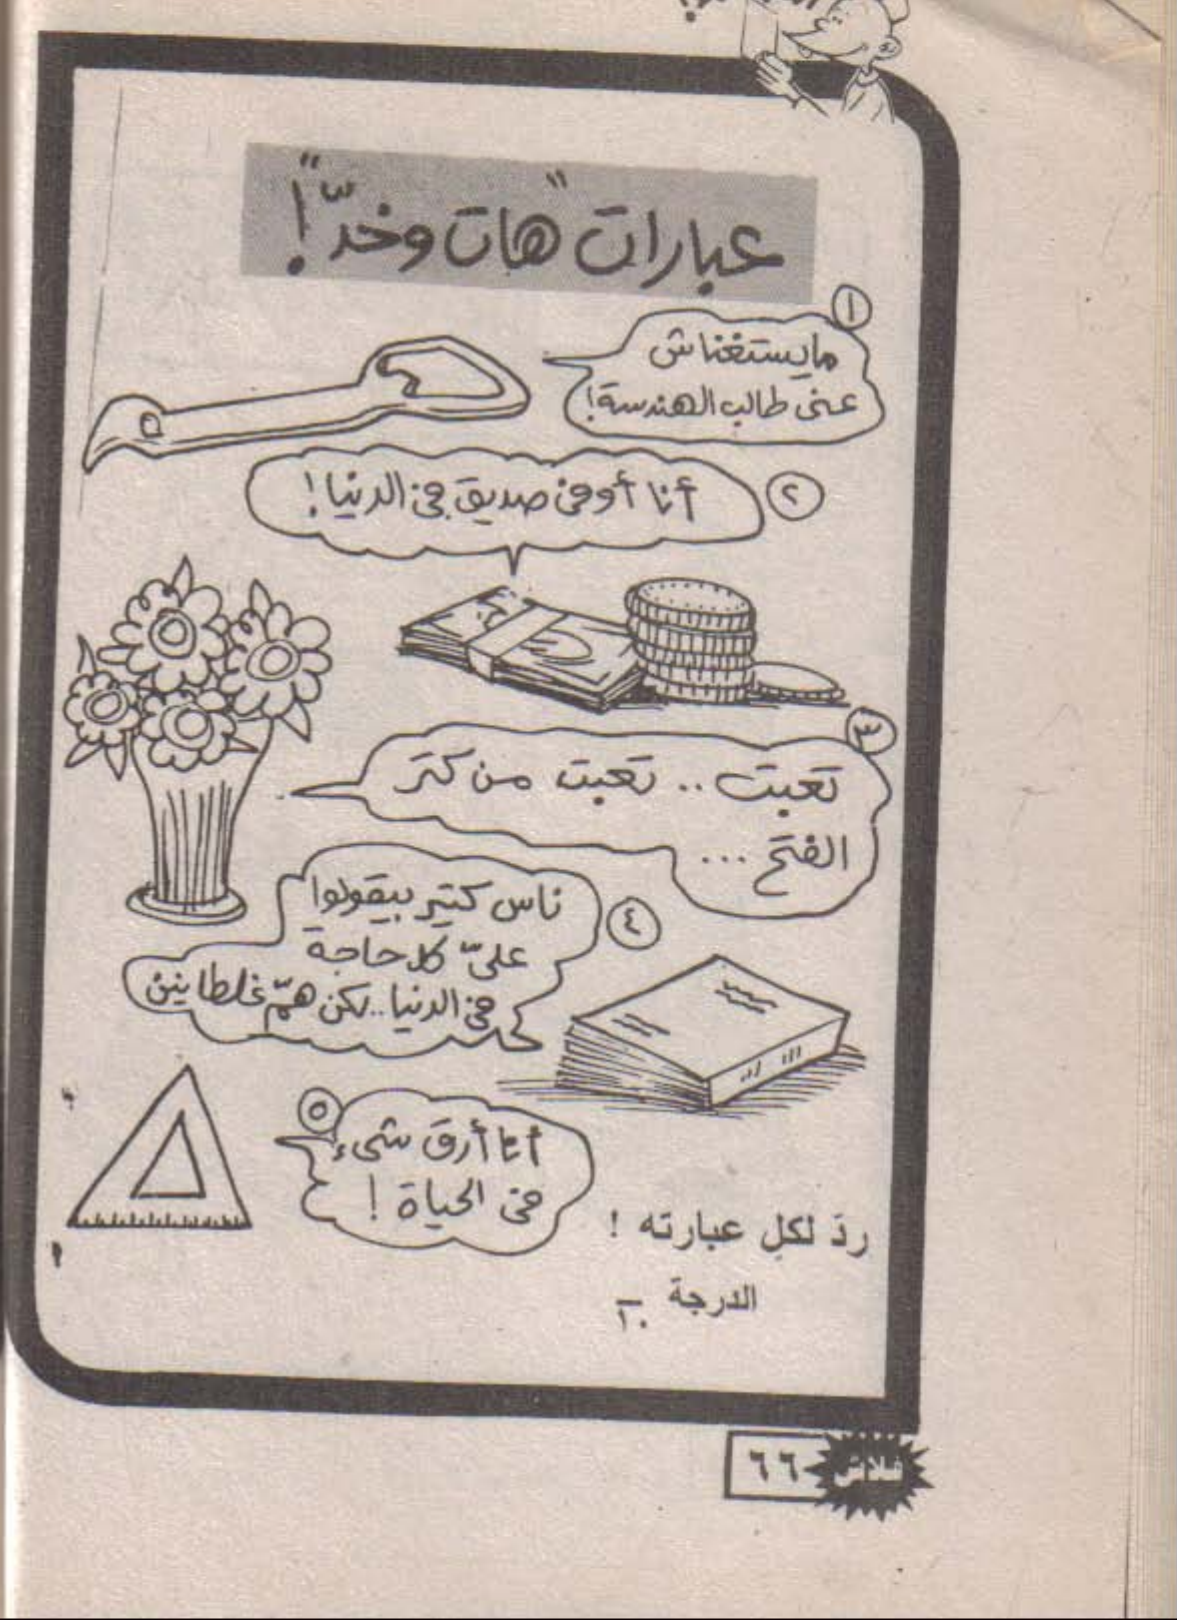 عبارات "هات وخدّ"!
١
مايستغناش
عنى طالب الهندسة!
٢
أنا أوفى صديق فى الدنيا!
٣
تعبت .. تعبت من كتر
الفتح ...
٤
ناس كتير بيقولوا
علىّ كل حاجة
فى الدنيا.. لكن همّ غلطانين
٥
أنا أرق شىء
فى الحياة !
ردّ لكل عبارته !
الدرجة ١٠
٦٦
فلاش